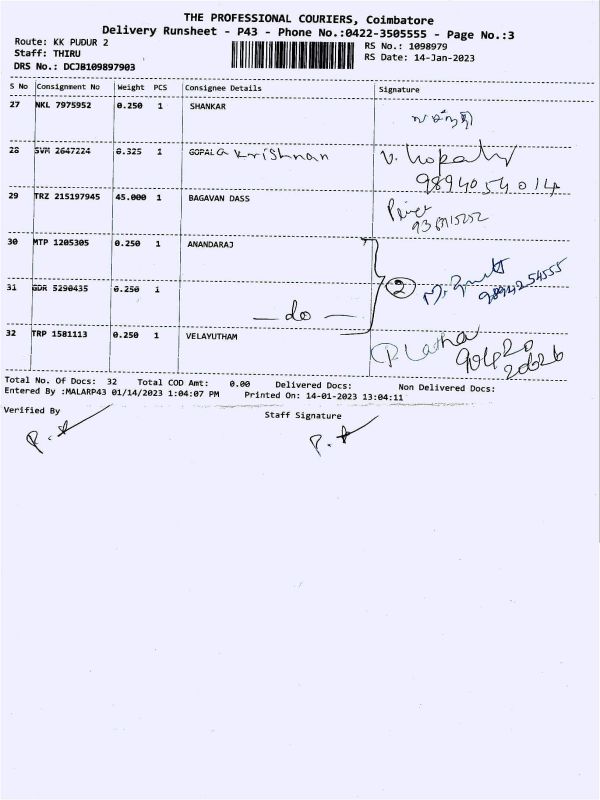 THE PROFESSIONAL COURIERS, Coimbatore
Delivery Runsheet - P43 - Phone No.:0422-3505555 - Page No.:3
Route: KK PUDUR 2
RS No.: 1098979
Staff: THIRU
RS Date: 14-Jan-2023
DRS No.: DCJB109897903
S No Consignment No Weight PCS Consignee Details Signature
27 NKL 7975952 0.250 1 SHANKAR
28 SVM 2647224 0.325 1 GOPALA Krishnan
9894054014
29 TRZ 215197945 45.000 1 BAGAVAN DASS
30 MTP 1205305 0.250 1 ANANDARAJ
2
31 GDR 5290435 0.250 1
9894254555
— do —
32 TRP 1581113 0.250 1 VELAYUTHAM
P Latha
90420
20626
Total No. Of Docs: 32 Total COD Amt: 0.00 Delivered Docs: Non Delivered Docs:
Entered By :MALARP43 01/14/2023 1:04:07 PM Printed On: 14-01-2023 13:04:11
Verified By Staff Signature